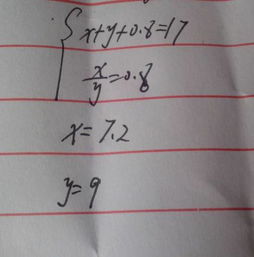 x+y+0.8=17
x/y=0.8
x=7.2
y=9